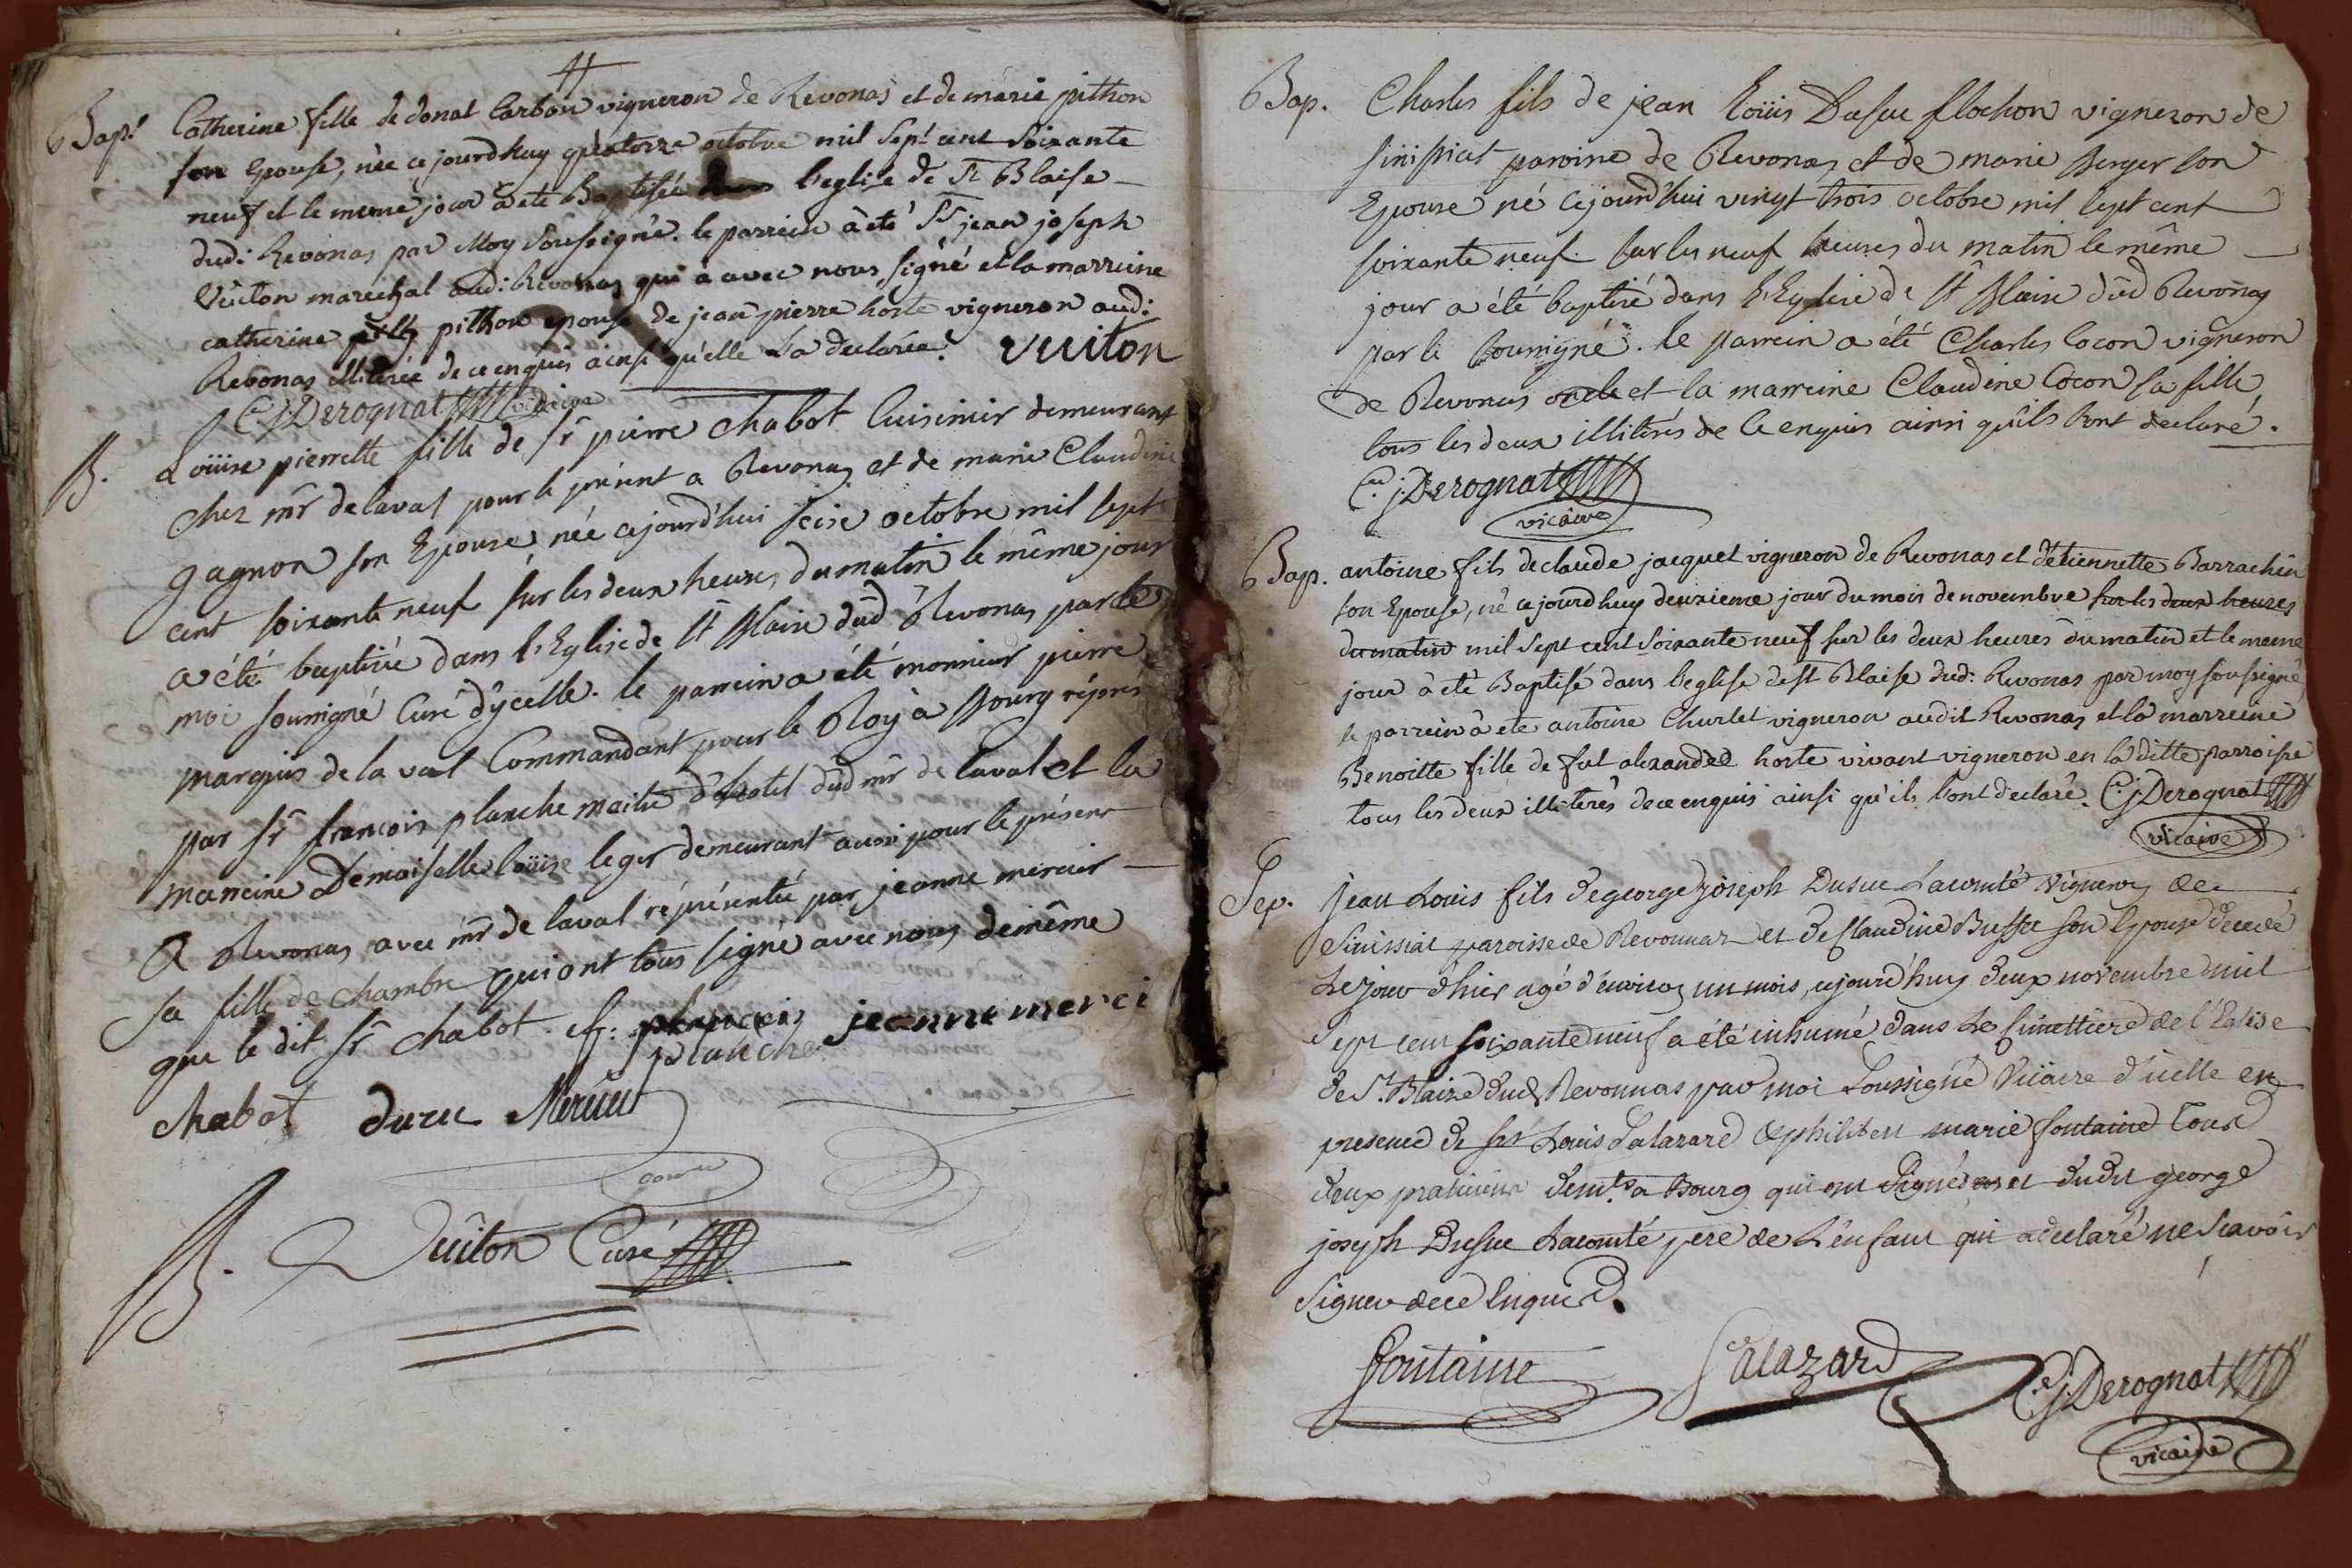 Bap.t Catherine fille de donat Carbon vigneron de Revonas et de marie pithon
son Epouse, née ce jourdhuy quatorze octobre mil Sept cent Soixante
neuf et le meme jour à eté Baptisée dans l'eglise de St Blaise
dud: Revonas par Moy soussigné. le parrein à été Sr jean joseph
Vuiton marechal aud: Revonas qui a avec nous signé et la marreine
catherine pith pithon epouse de jean pierre hoste vigneron aud:
Revonas illiterée de ce enquis ainsi qu'elle l'a declarée. vuiton
C. j. Derognat vicaire
B. Loüise pierrette fille de Sr pierre chabot Cuisinier demeurant
chez mr de laval pour le présent a Revonas et de marie Claudine
gagnon son Epouse née cejourd'hui seise octobre mil sept
cent soixante neuf sur les deux heures du matin le même jour
a été baptisée dans l'Eglise de St Blaise dud Revonas par le
moi soussigné Curé d'ycelle. le parrein a été monsieur pierre
marquis de la val Commandant pour le Roy à Bourg réprés
par Sr francois planche maitre d'hotel dud mr de laval et la
marreine Demoiselle loüise leger demeurant aussi pour le présent
a Revonas avec mr de laval répresentée par jeanne mercier
sa fille de chambre qui ont tous signé avec nous de même
que le dit Sr chabot. ff: planche jeanne merci
planche
chabot ducu
B. Vuiton Curé
Bap. Charles fils de jean Loüis Dusuc flochon vigneron de
sinissiat paroisse de Revonas et de marie Berger son
Epouse né cejourd'hui vingt trois octobre mil sept cent
soixante neuf sur les neuf heures du matin le même
jour a été baptisé dans l'Eglise de St Blaise dud Revonas
par le soussigné. le parrein a été Charles Cocon vigneron
de Revonas oncle et la marreine Claudine Cocon sa fille
tous les deux illitérés de ce enquis ainsi qu'ils l'ont declaré.
C. j. Derognat
vicaire
Bap. antoine fils de claude jacquet vigneron de Revonas et d'etiennette Barrachin
son Epouse, né ce jourdhuy deuxieme jour du mois de novembre sur les deux heures
du matin mil Sept cent Soixante neuf sur les deux heures du matin et le meme
jour à eté Baptisé dans l'eglise de St Blaise dud: Revonas par moy soussigné
le parrein à eté antoine Churlet vigneron audit Revonas et la marreine
Benoitte fille de fut alexandre hoste vivant vigneron en la ditte parroisse
tous les deux illiterés de ce enquis ainsi qu'ils l'ont declaré. C. j. Derognat
vicaire
Sep. jean Louis fils de george joseph Dusuc Lacomté vigneron de
Sinissiat paroisse de Revonnas et de Claudine Buffet son Epouse decedé
Le jour d'hier agé d'environ un mois, cejourd'huy deux novembre mil
Sept cent soixante neuf a été inhumé dans Le simettiere de l'Eglise
de St. Blaize dud Revonnas par moi Soussigné Vicaire d'icelle en
presence de srs Louis Salazard et philibert marie fontaine tous
deux praticiens demts a Bourg qui ont Signé et dudit george
joseph Dusuc Lacomté pere de L'enfant qui a declaré ne scavoir
Signer de ce Enquis.
fontaine Salazard C. j. Derognat
vicaire